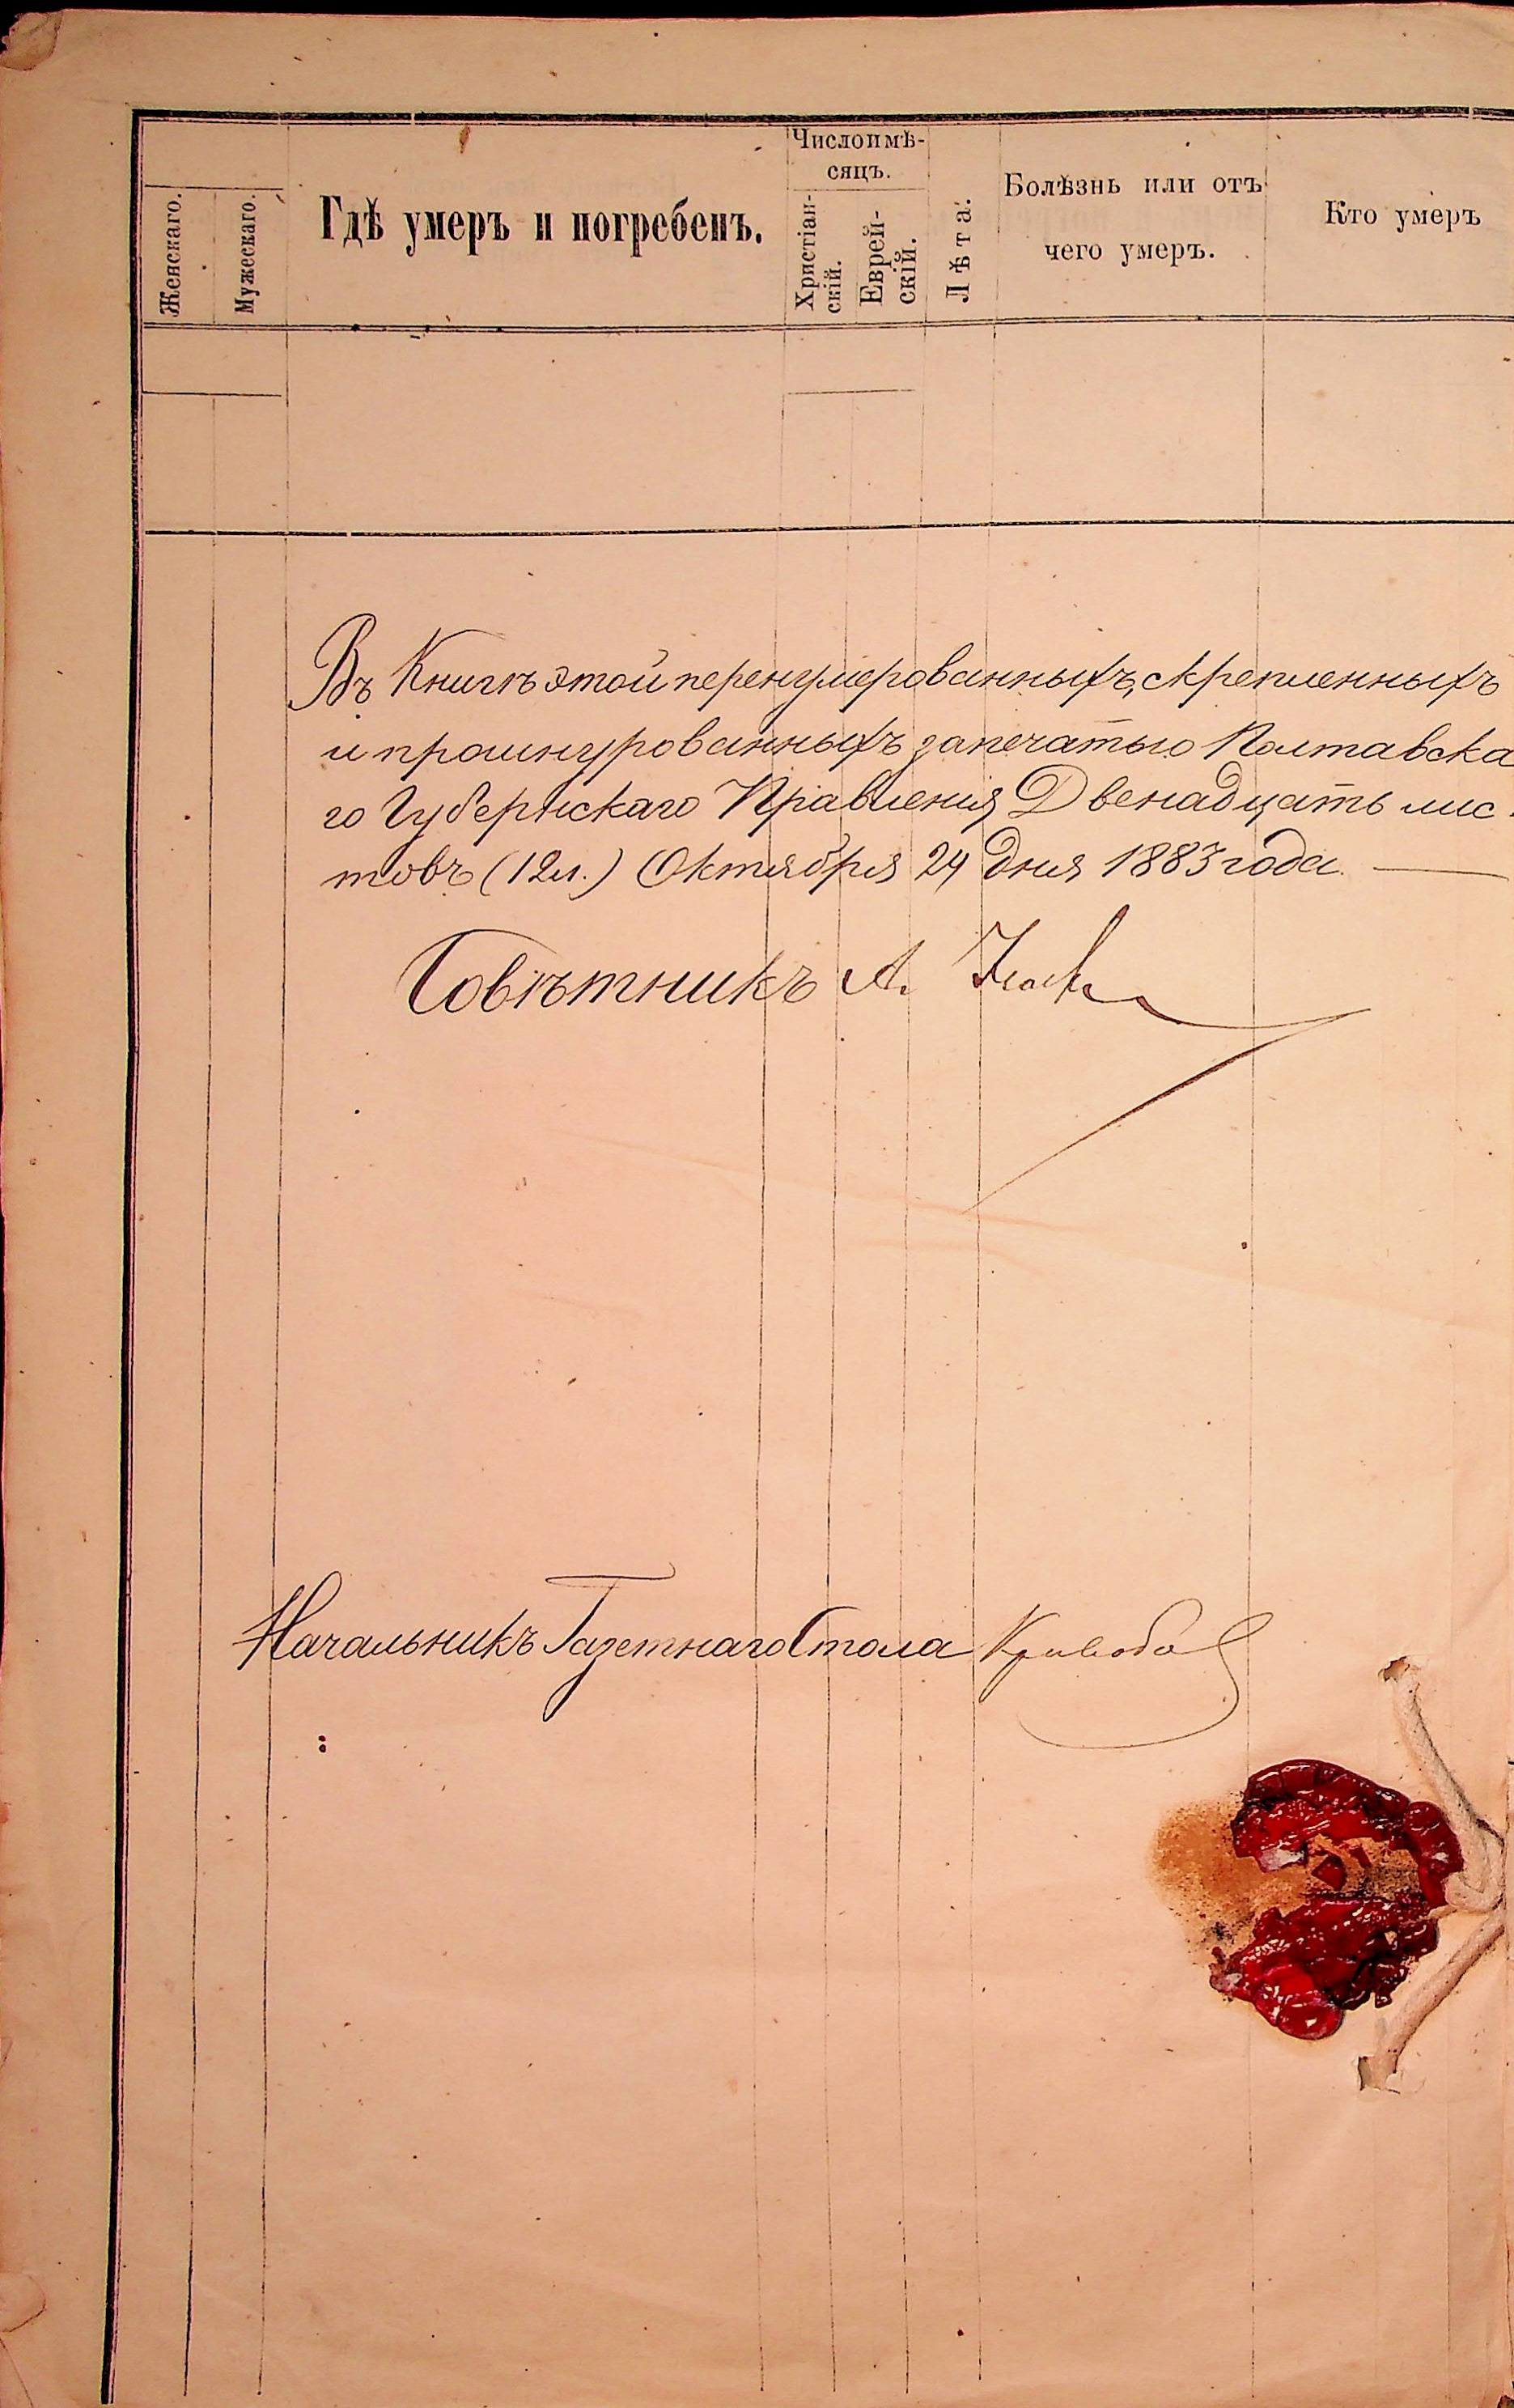 Женскаго.
Мужескаго.
Гдѣ умеръ и погребенъ.
Число и мѣ-
сяцъ.
Христіан-
скій.
Еврей-
скій.
Лѣта.
Болѣзнь или отъ
чего умеръ.
Кто умеръ
Въ Книгѣ этой перенумерованныхъ, скрепленныхъ
и прошнурованныхъ за печатью Полтавска
го Губернскаго Правленія Двенадцать лис
товъ (12 л.) Октября 24 дня 1883 года. —
Совѣтникъ А.
Начальникъ Газетнаго Стола